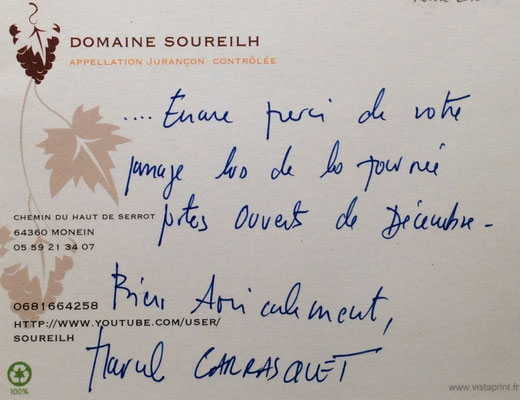 DOMAINE SOUREILH
APPELLATION JURANÇON CONTRÔLÉE
.... Encore merci de votre
passage lors de la journée
portes ouverts de Décembre -
CHEMIN DU HAUT DE SERROT
64360 MONEIN
05 59 21 34 07
Bien Amicalement,
0681664258
HTTP://WWW.YOUTUBE.COM/USER/
SOUREILH
CARRASQUET
100%
www.vistaprint.fr